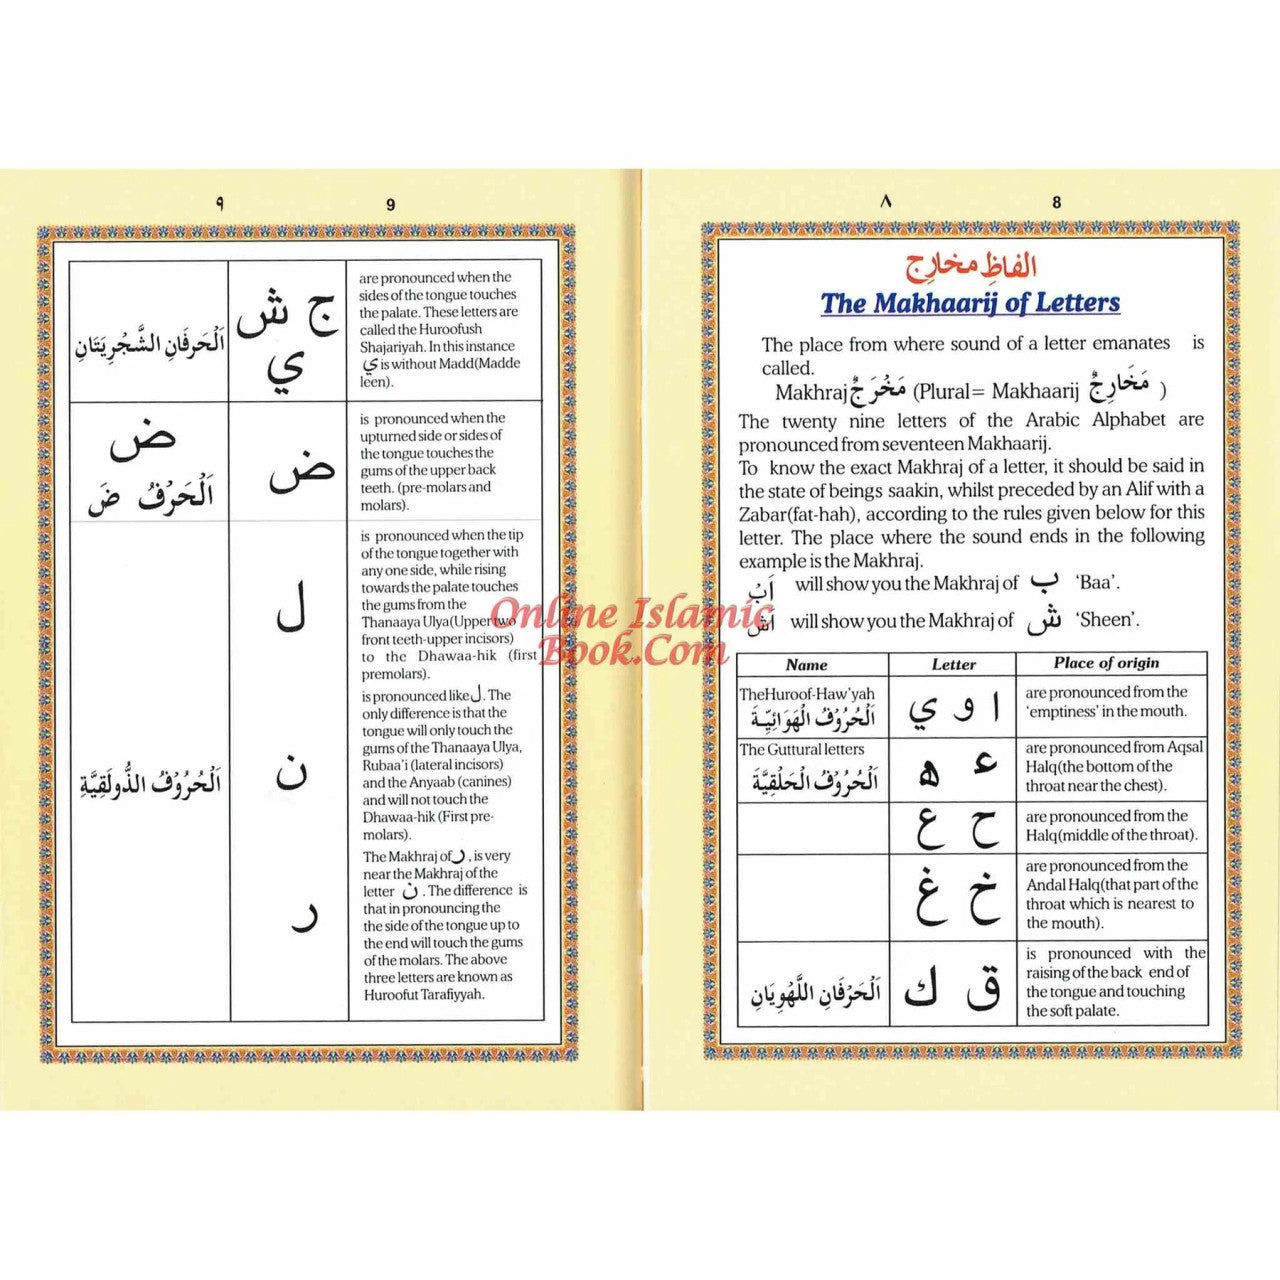 ٨ 8
الفاظِ مخارِج
The Makhaarij of Letters
The place from where sound of a letter emanates is
called.
Makhraj مَخْرَجٌ (Plural= Makhaarij مَخَارِجٌ )
The twenty nine letters of the Arabic Alphabet are
pronounced from seventeen Makhaarij.
To know the exact Makhraj of a letter, it should be said in
the state of beings saakin, whilst preceded by an Alif with a
Zabar(fat-hah), according to the rules given below for this
letter. The place where the sound ends in the following
example is the Makhraj.
اَبْ will show you the Makhraj of ب 'Baa'.
اَشْ will show you the Makhraj of ش 'Sheen'.
Name Letter Place of origin
TheHuroof-Haw'yah
اَلْحُرُوْفُ الْهَوَائِيَّةَ
ا و ي
are pronounced from the
'emptiness' in the mouth.
The Guttural letters
اَلْحُرُوْفُ الْحَلْقِيَّةَ
ء ه
are pronounced from Aqsal
Halq(the bottom of the
throat near the chest).
ح ع
are pronounced from the
Halq(middle of the throat).
خ غ
are pronounced from the
Andal Halq(that part of the
throat which is nearest to
the mouth).
اَلْحَرْفَانِ اللَّهْوِيَانِ
ق ك
is pronounced with the
raising of the back end of
the tongue and touching
the soft palate.
٩ 9
اَلْحَرفَانِ الشَّجْرِيَتَانِ
ج ش
ي
are pronounced when the
sides of the tongue touches
the palate. These letters are
called the Huroofush
Shajariyah. In this instance
ي is without Madd(Madde
leen).
ض
اَلْحَرْفُ ضَ
ض
is pronounced when the
upturned side or sides of
the tongue touches the
gums of the upper back
teeth. (pre-molars and
molars).
اَلْحُرُوْفُ الذُّولَقِيَّةِ
ل
is pronounced when the tip
of the tongue together with
any one side, while rising
towards the palate touches
the gums from the
Thanaaya Ulya(Upper two
front teeth-upper incisors)
to the Dhawaa-hik (first
premolars).
ن
is pronounced like ل. The
only difference is that the
tongue will only touch the
gums of the Thanaaya Ulya,
Rubaa'i (lateral incisors)
and the Anyaab (canines)
and will not touch the
Dhawaa-hik (First pre-
molars).
ر
The Makhraj of ر, is very
near the Makhraj of the
letter ن . The difference is
that in pronouncing the
the side of the tongue up to
the end will touch the gums
of the molars. The above
three letters are known as
Huroofut Tarafiyyah.
Online Islamic
Book.Com